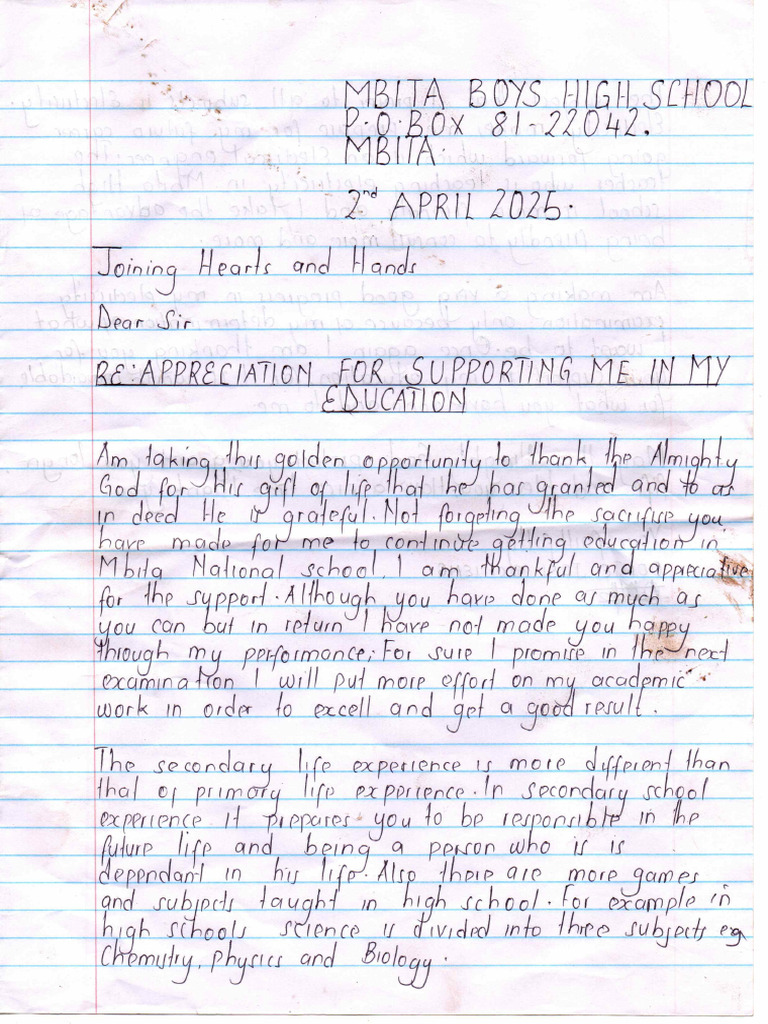 MBITA BOYS HIGH SCHOOL
P.O.BOX 81-22042.
MBITA.
2nd APRIL 2025.
Joining Hearts and Hands
Dear Sir
RE:APPRECIATION FOR SUPPORTING ME IN MY
EDUCATION
Am taking this golden opportunity to thank the Almighty
God for His gift of life that he has granted and to as
in deed He is grateful. Not forgeting the sacrifise you
have made for me to continue getting education in
Mbita National school. I am thankful and appreciative
for the support. Although you have done as much as
you can but in return I have not made you happy
through my performance; For sure I promise in the next
examination I will put more effort on my academic
work in order to excell and get a good result.
The secondary life experience is more different than
that of primary life experience. In secondary school
experience it prepares you to be responsible in the
future life and being a person who is is
dependant in his life. Also there are more games
and subjects taught in high school. For example in
high schools science is divided into three subjects eg
Chemistry, Physics and Biology.